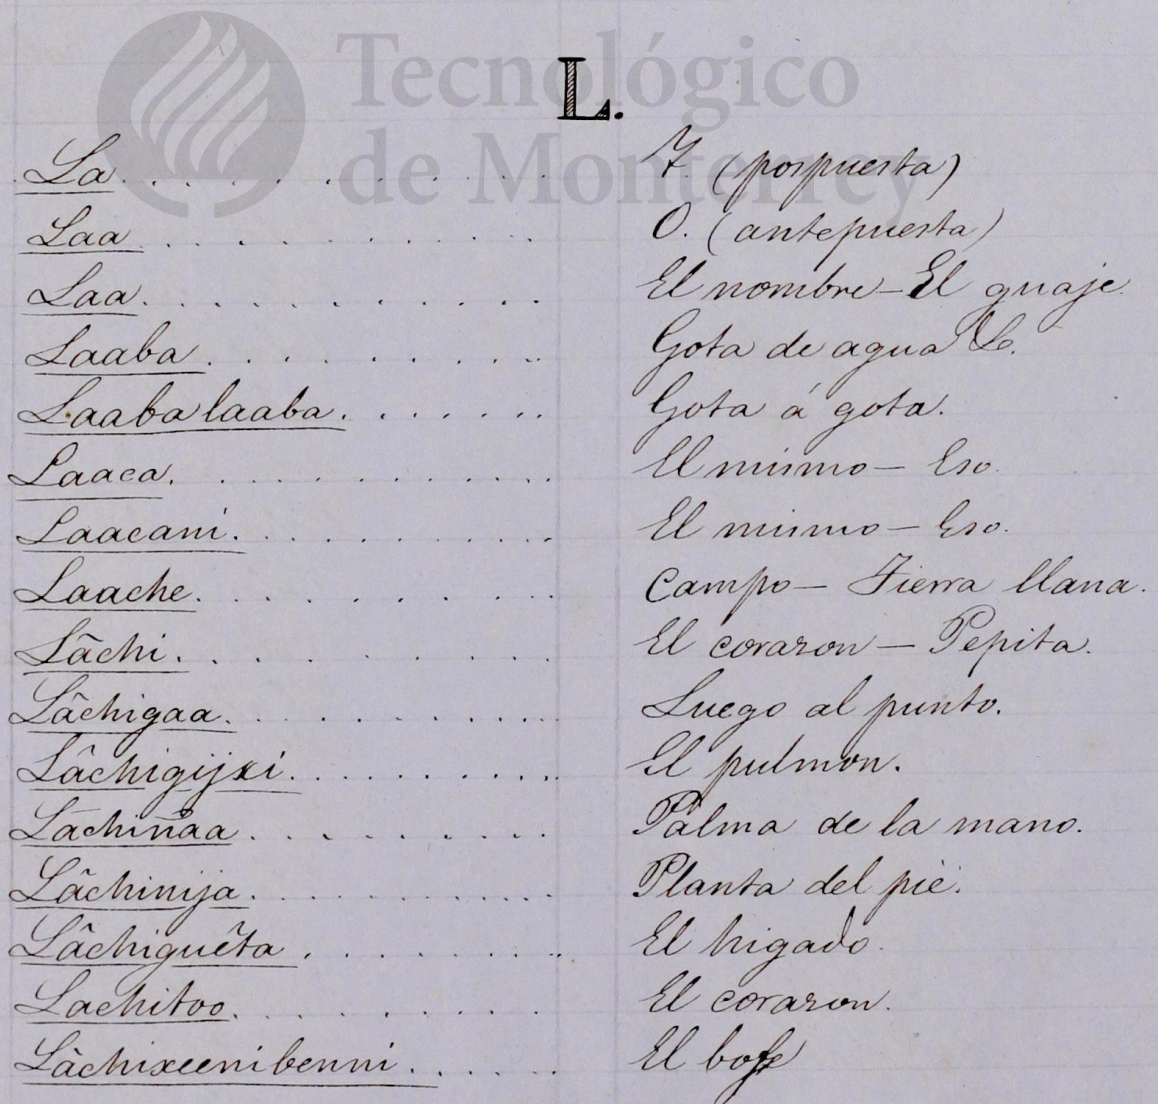 Tecnológico
de Monterrey
L.
La. . . . . . . . . . Y. (pospuesta)
Laa . . . . . . . . . . O. (antepuesta)
Laa. . . . . . . . . . El nombre – El guaje.
Laaba. . . . . . . . . . Gota de agua &c.
Laaba laaba. . . . . . . Gota á gota.
Laaca. . . . . . . . . . El mismo – Eso.
Laacani. . . . . . . . . . El mismo – Eso.
Laache. . . . . . . . . . Campo – Tierra llana.
Lâchi. . . . . . . . . . El corazon – Pepita.
Lâchigaa. . . . . . . . . . Luego al punto.
Lâchigijxi. . . . . . . . . . El pulmon.
Lachiñaa . . . . . . . . . Palma de la mano.
Lâchinija. . . . . . . . . . Planta del pié.
Lâchiguêta . . . . . . . . . El higado.
Lachitoo. . . . . . . . . . El corazon.
Lâchixeenibenni. . . . . El bofe